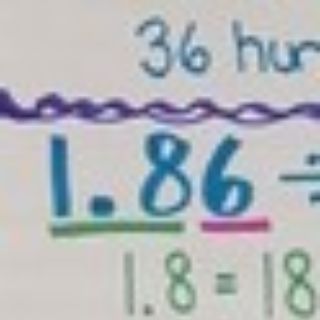 36 hun
1.86 ÷
1.8 = 18